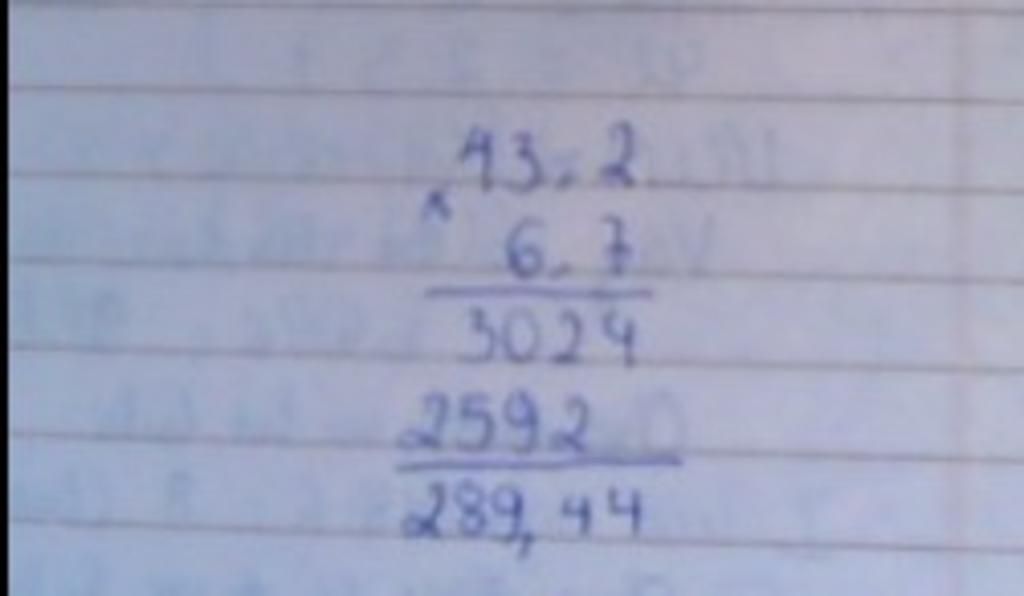 43. 2
×
6. 7
3024
2592
289,44